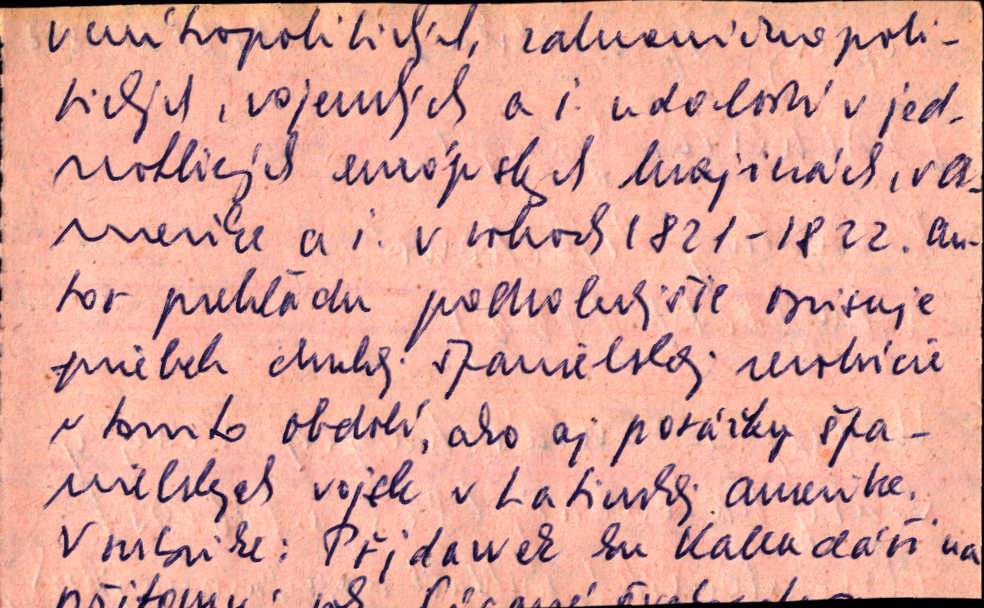 vnútropolitických, zahraničnopoli-
tických, vojenských a i. udalostí v jed-
notlivých európskych krajinách, v A-
merike a i. v rokoch 1821-1822. Au-
tor prehľadu podrobnejšie opisuje
priebeh druhej španielskej revolúcie
v tomto období, ako aj porážky špa-
nielskych vojsk v Latinskej Amerike.
V rubrike: Přjdawek ku Kalendáři na
přítomný rok